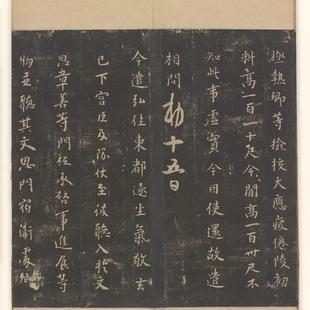 極熱卿等檢校大應疲倦陵初
料高一百一十尺今聞高一百卅尺不
知此事虛實今因使還故遣
相問敕十五日
今遣弘往東都逐生氣敬玄
已下宮臣及隊仗至彼聽入於文
思章善等門祗承啓事進展等
物並聽其文思門宿衛處卿